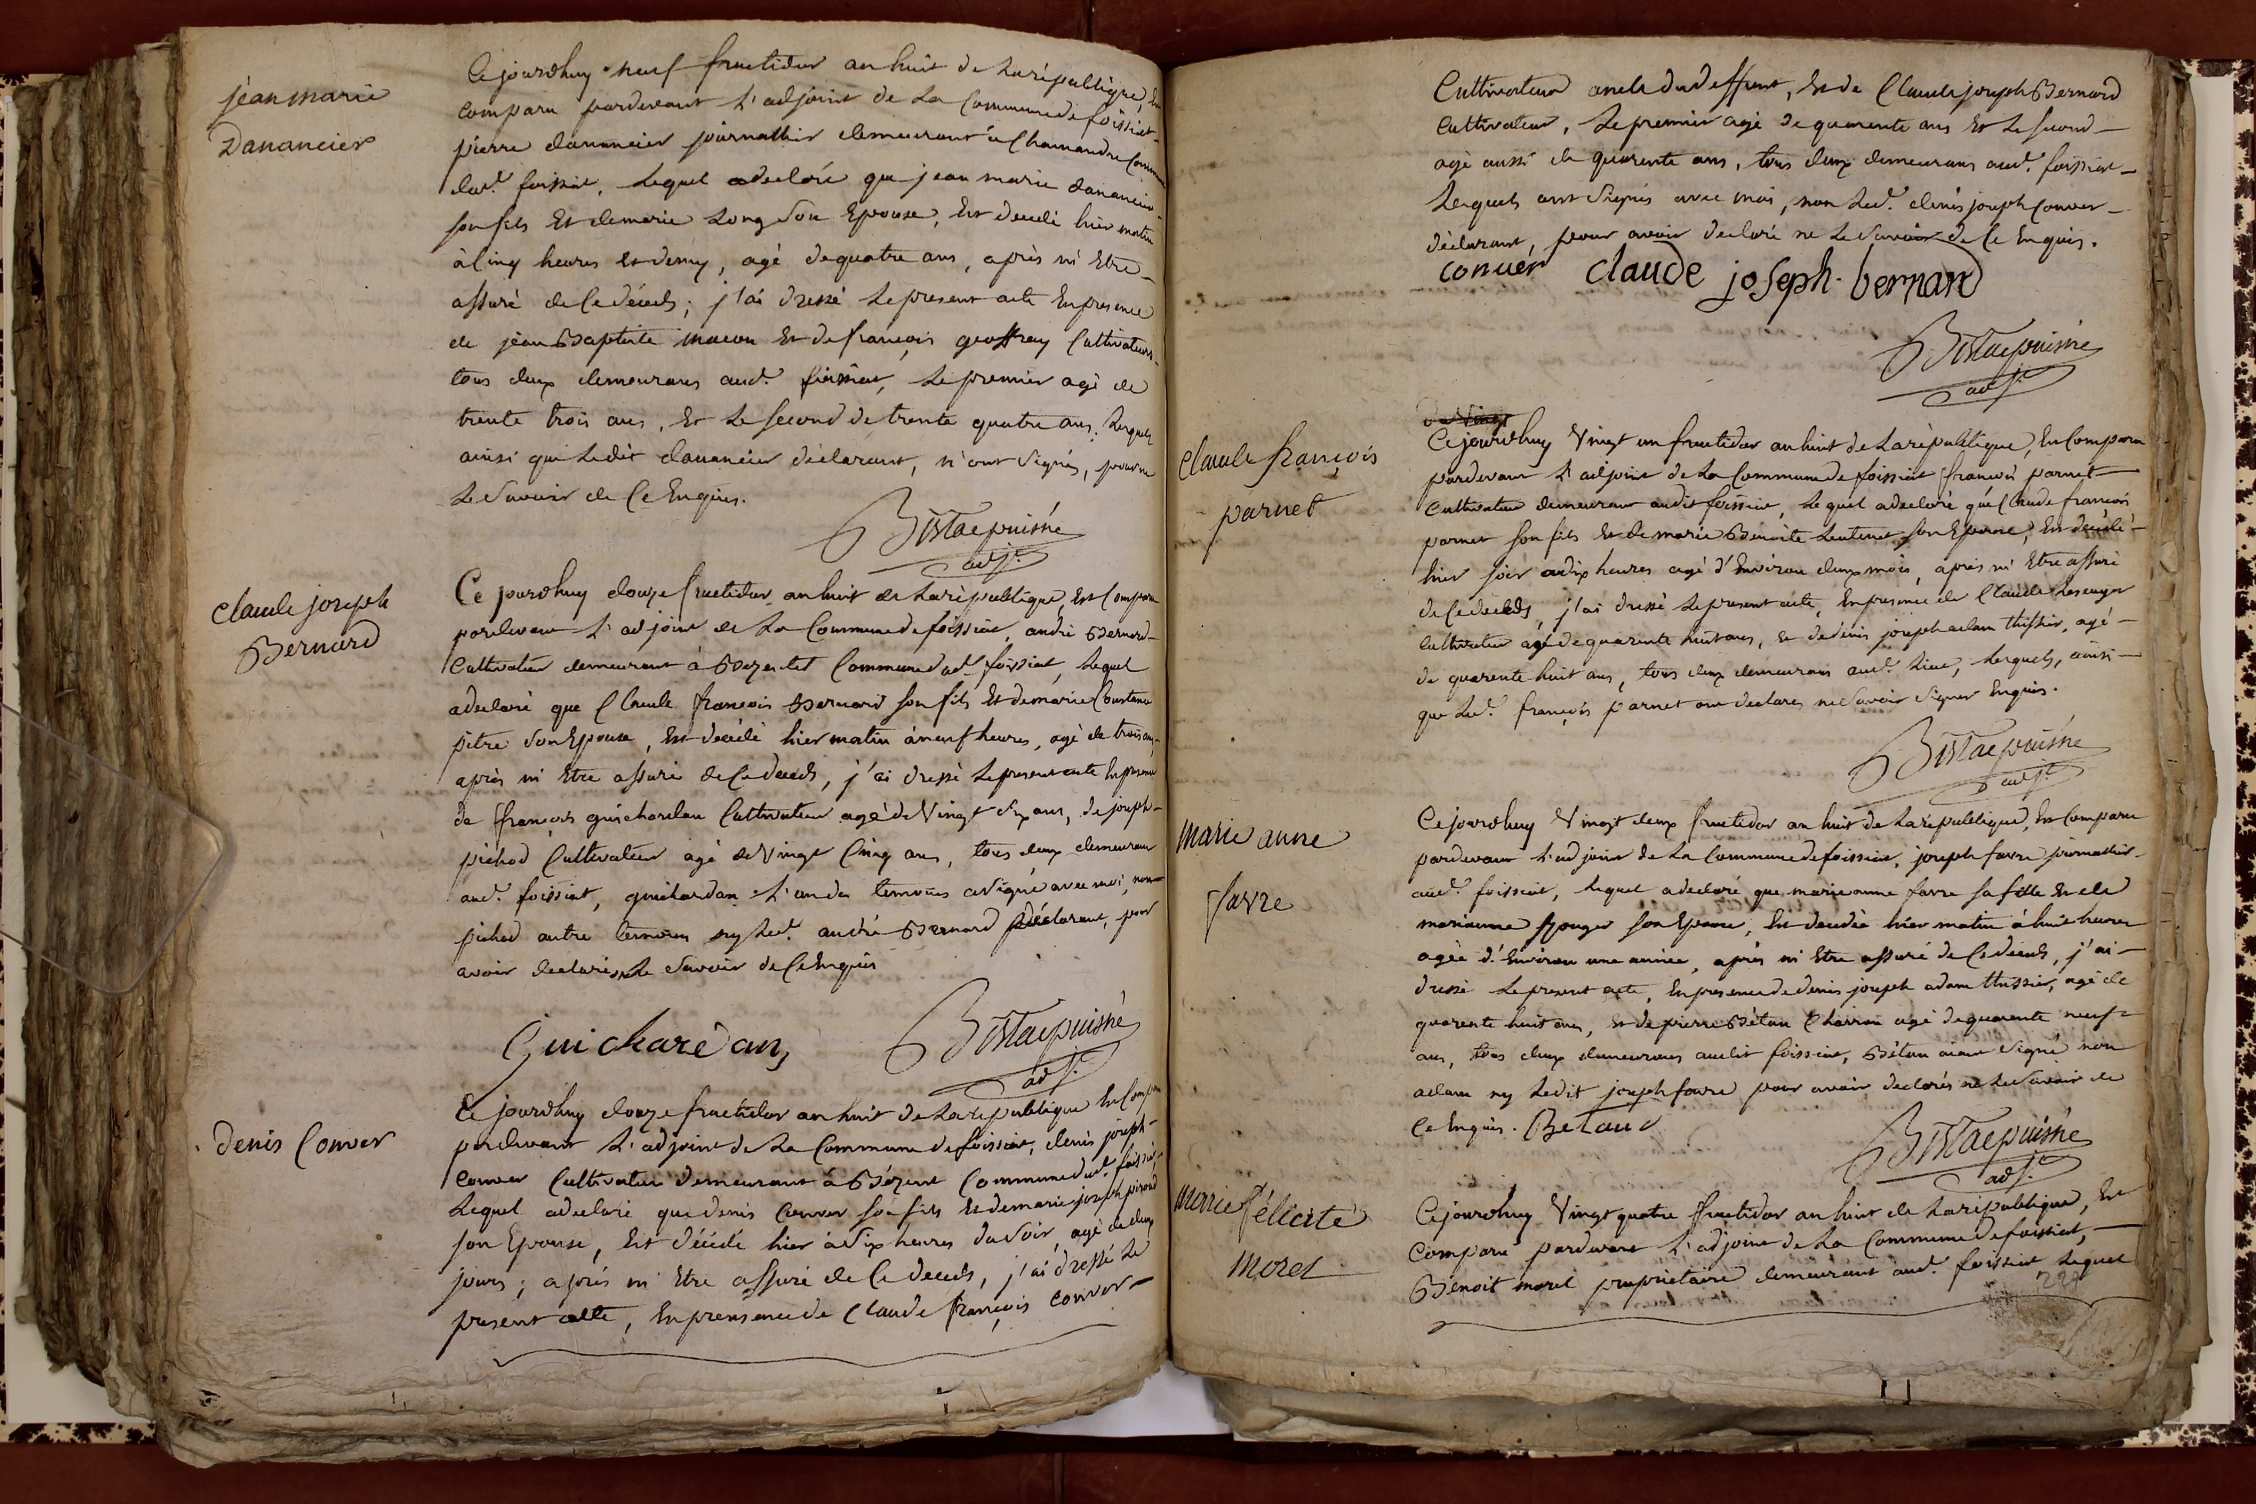 jean marie
Danancier
Ce jourdhuy neuf fructidor an huit de La république, Est
comparu pardevant L'adjoint de La Commune de foissiat
pierre danancier journallier demeurant à Chamandre Comm
dud.t foissiat, Lequel a declaré que jean marie danancier
son fils Et de marie Long son Epouse, Est decedé hier matin
à Cinq heures et demy, agé de quatre ans, après m'Etre
assuré de Ce décéds; j'ai dressé Le present acte En presence
de jean Baptiste macon Et de françois geoffray Cultivateurs
tous deux demeurans aud.t foissiat, Le premier agé de
trente trois ans, Et Le second de trente quatre ans. Lesquels
ainsi que Ledit danancier déclarant, n'ont signés, pour ne
Le savoir de Ce Enquis.
Bistac puisné
adj.t
Claude joseph
Bernard
Ce jourdhuy douze fructidor an huit de La république, Est Comparu
pardevant L'adjoint de La Commune de foissiat, andré Bernard
Cultivateur demeurant à Bezentet Commune dud.t foissiat, Lequel
a declaré que Claude françois Bernard son fils Et de marie Constance
pitre son Epouse, Est decédé hier matin à neuf heures, agé de trois ans,
après m'Etre assuré de Ce deceds, j'ai dressé Le present acte En presence
de françois guichardan Cultivateur agé de Vingt six ans, de joseph
pichod Cultivateur agé de Vingt Cinq ans, tous deux demeurans
aud.t foissiat, guichardan L'un des temoins a signé avec moi, non
pichod autre temoins ny Led.t andré Bernard déclarant, pour
avoir declarés ne Le savoir de Ce Enquis
Guichardan
Bistac puisné
adj.t
Denis Conver
Ce jourdhuy douze fructidor an huit de La republique Est Comparu
pardevant L'adjoint de La Commune de foissiat, denis joseph
Conver Cultivateur demeurant à Bézent Commune dud.t foissiat
Lequel a declaré que denis Conver son fils Et de marie joseph pirod
son Epouse, Est décédé hier à six heures du soir, agé de deux
jours; après m'Etre assuré de Ce deceds, j'ai dressé Le
present acte, En presence de Claude françois Conver
Cultivateur oncle du deffunt, Et de Claude joseph Bernard
Cultivateur, Le premier agé de quarente ans Et Le second
agé aussi de quarente ans, tous deux demeurans aud.t foissiat
Lesquels ont signés avec moi, non Led.t denis joseph Conver
déclarant, pour avoir declaré ne Le savoir de Ce Enquis.
conver claude joseph bernard
Bistac puisné
adj.t
Claude françois
parnet
Ce jourdhuy Vingt un fructidor an huit de La république, Est Comparu
pardevant L'adjoint de La Commune de foissiat françois parnet
Cultivateur demeurant audit foissiat, Lequel a declaré que Claude françois
parnet son fils Et de marie Benoite Lentenet son Epouse, Est decédé
hier soir à dix heures agé d'Environ deux mois, après m'Etre assuré
de Ce deceds, j'ai dressé Le present acte, En presence de Claude
Cultivateur agé de quarente huit ans, Et de denis joseph adam thissier, agé
de quarente huit ans, tous deux demeurans aud.t Lieu, Lesquels, ainsi
que Led.t françois parnet ont declarés ne savoir signer Enquis.
Bistac puisné
adj.t
Marie anne
favre
Ce jourdhuy Vingt deux fructidor an huit de La république, Est Comparu
pardevant L'adjoint de La Commune de foissiat, joseph favre journallier
aud.t foissiat, Lequel a declaré que marie anne favre sa fille Et de
marianne Spouger son Epouse, Est decedée hier matin à huit heures
agée d'Environ une année, après m'Etre assuré de Ce deceds, j'ai
dressé Le present acte, En presence de denis joseph adam thissier, agé de
quarente huit ans, et de pierre Bétau Charron agé de quarente neuf
ans, tous deux demeurans audit foissiat, Bétau aiant signé non
adam ny Ledit joseph favre pour avoir declarés ne Le savoir de
Ce Enquis. Betaud
Bistac puisné
adj.t
Marie félicité
Morel
Ce jourdhuy Vingt quatre fructidor an huit de La république, Est
Comparu pardevant L'adjoint de La Commune de foissiat,
Benoit morel proprietaire demeurant aud.t foissiat Lequel